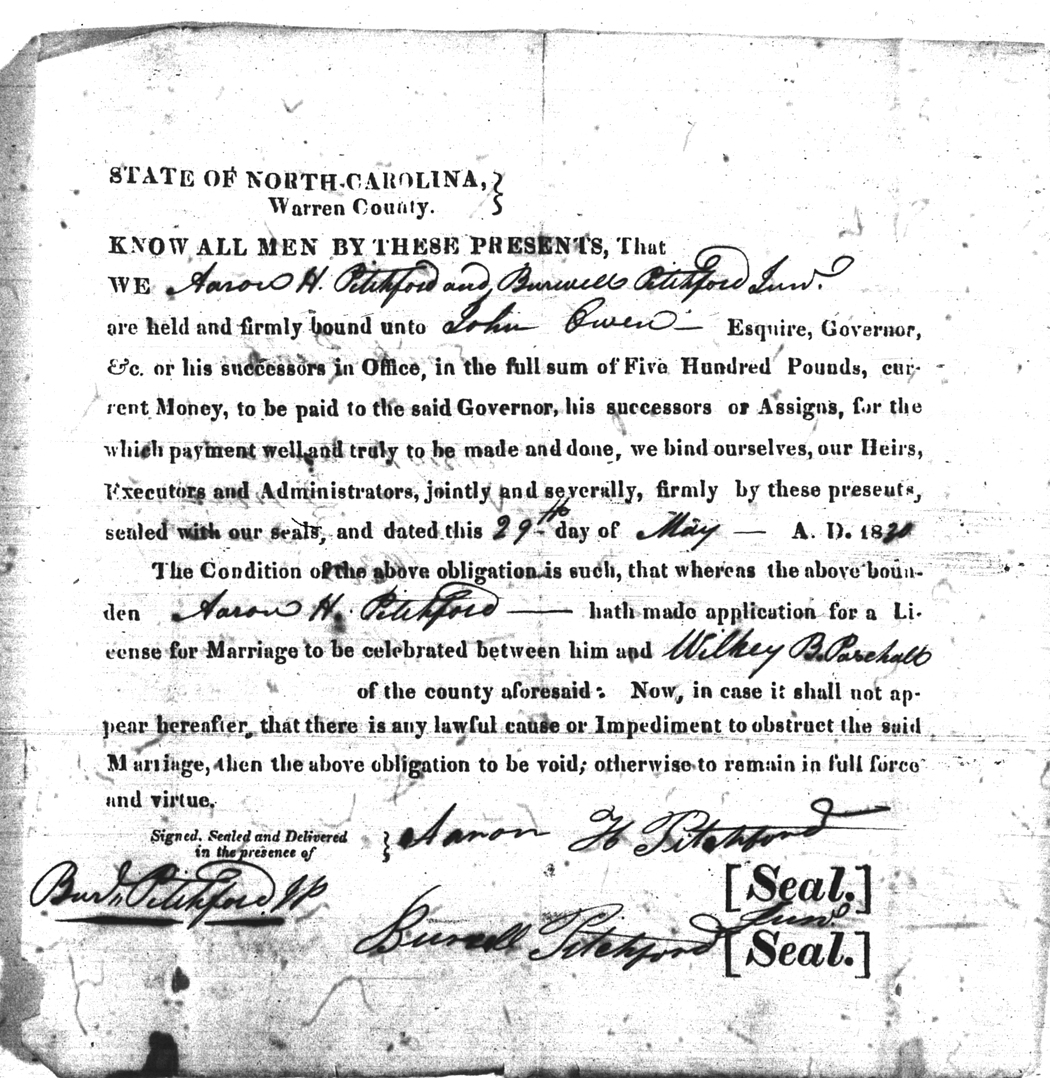 STATE OF NORTH-CAROLINA,
Warren County.
KNOW ALL MEN BY THESE PRESENTS, That
WE Aaron H. Pitchford and Burwell Pitchford Junr.
are held and firmly bound unto John Owen — Esquire, Governor,
&c. or his successors in Office, in the full sum of Five Hundred Pounds, cur-
rent Money, to be paid to the said Governor, his successors or Assigns, for the
which payment well and truly to be made and done, we bind ourselves, our Heirs,
Executors and Administrators, jointly and severally, firmly by these presents,
sealed with our seals, and dated this 29th day of May — A. D. 1830
The Condition of the above obligation is such, that whereas the above boun-
den Aaron H. Pitchford — hath made application for a Li-
cense for Marriage to be celebrated between him and Wilkey B. Paschall
of the county aforesaid: Now, in case it shall not ap-
pear hereafter, that there is any lawful cause or Impediment to obstruct the said
Marriage, then the above obligation to be void; otherwise to remain in full force
and virtue.
Signed, Sealed and Delivered
in the presence of
Aaron H Pitchford
[Seal.]
Burl. Pitchford JP
Burwell Pitchford Junr
[Seal.]